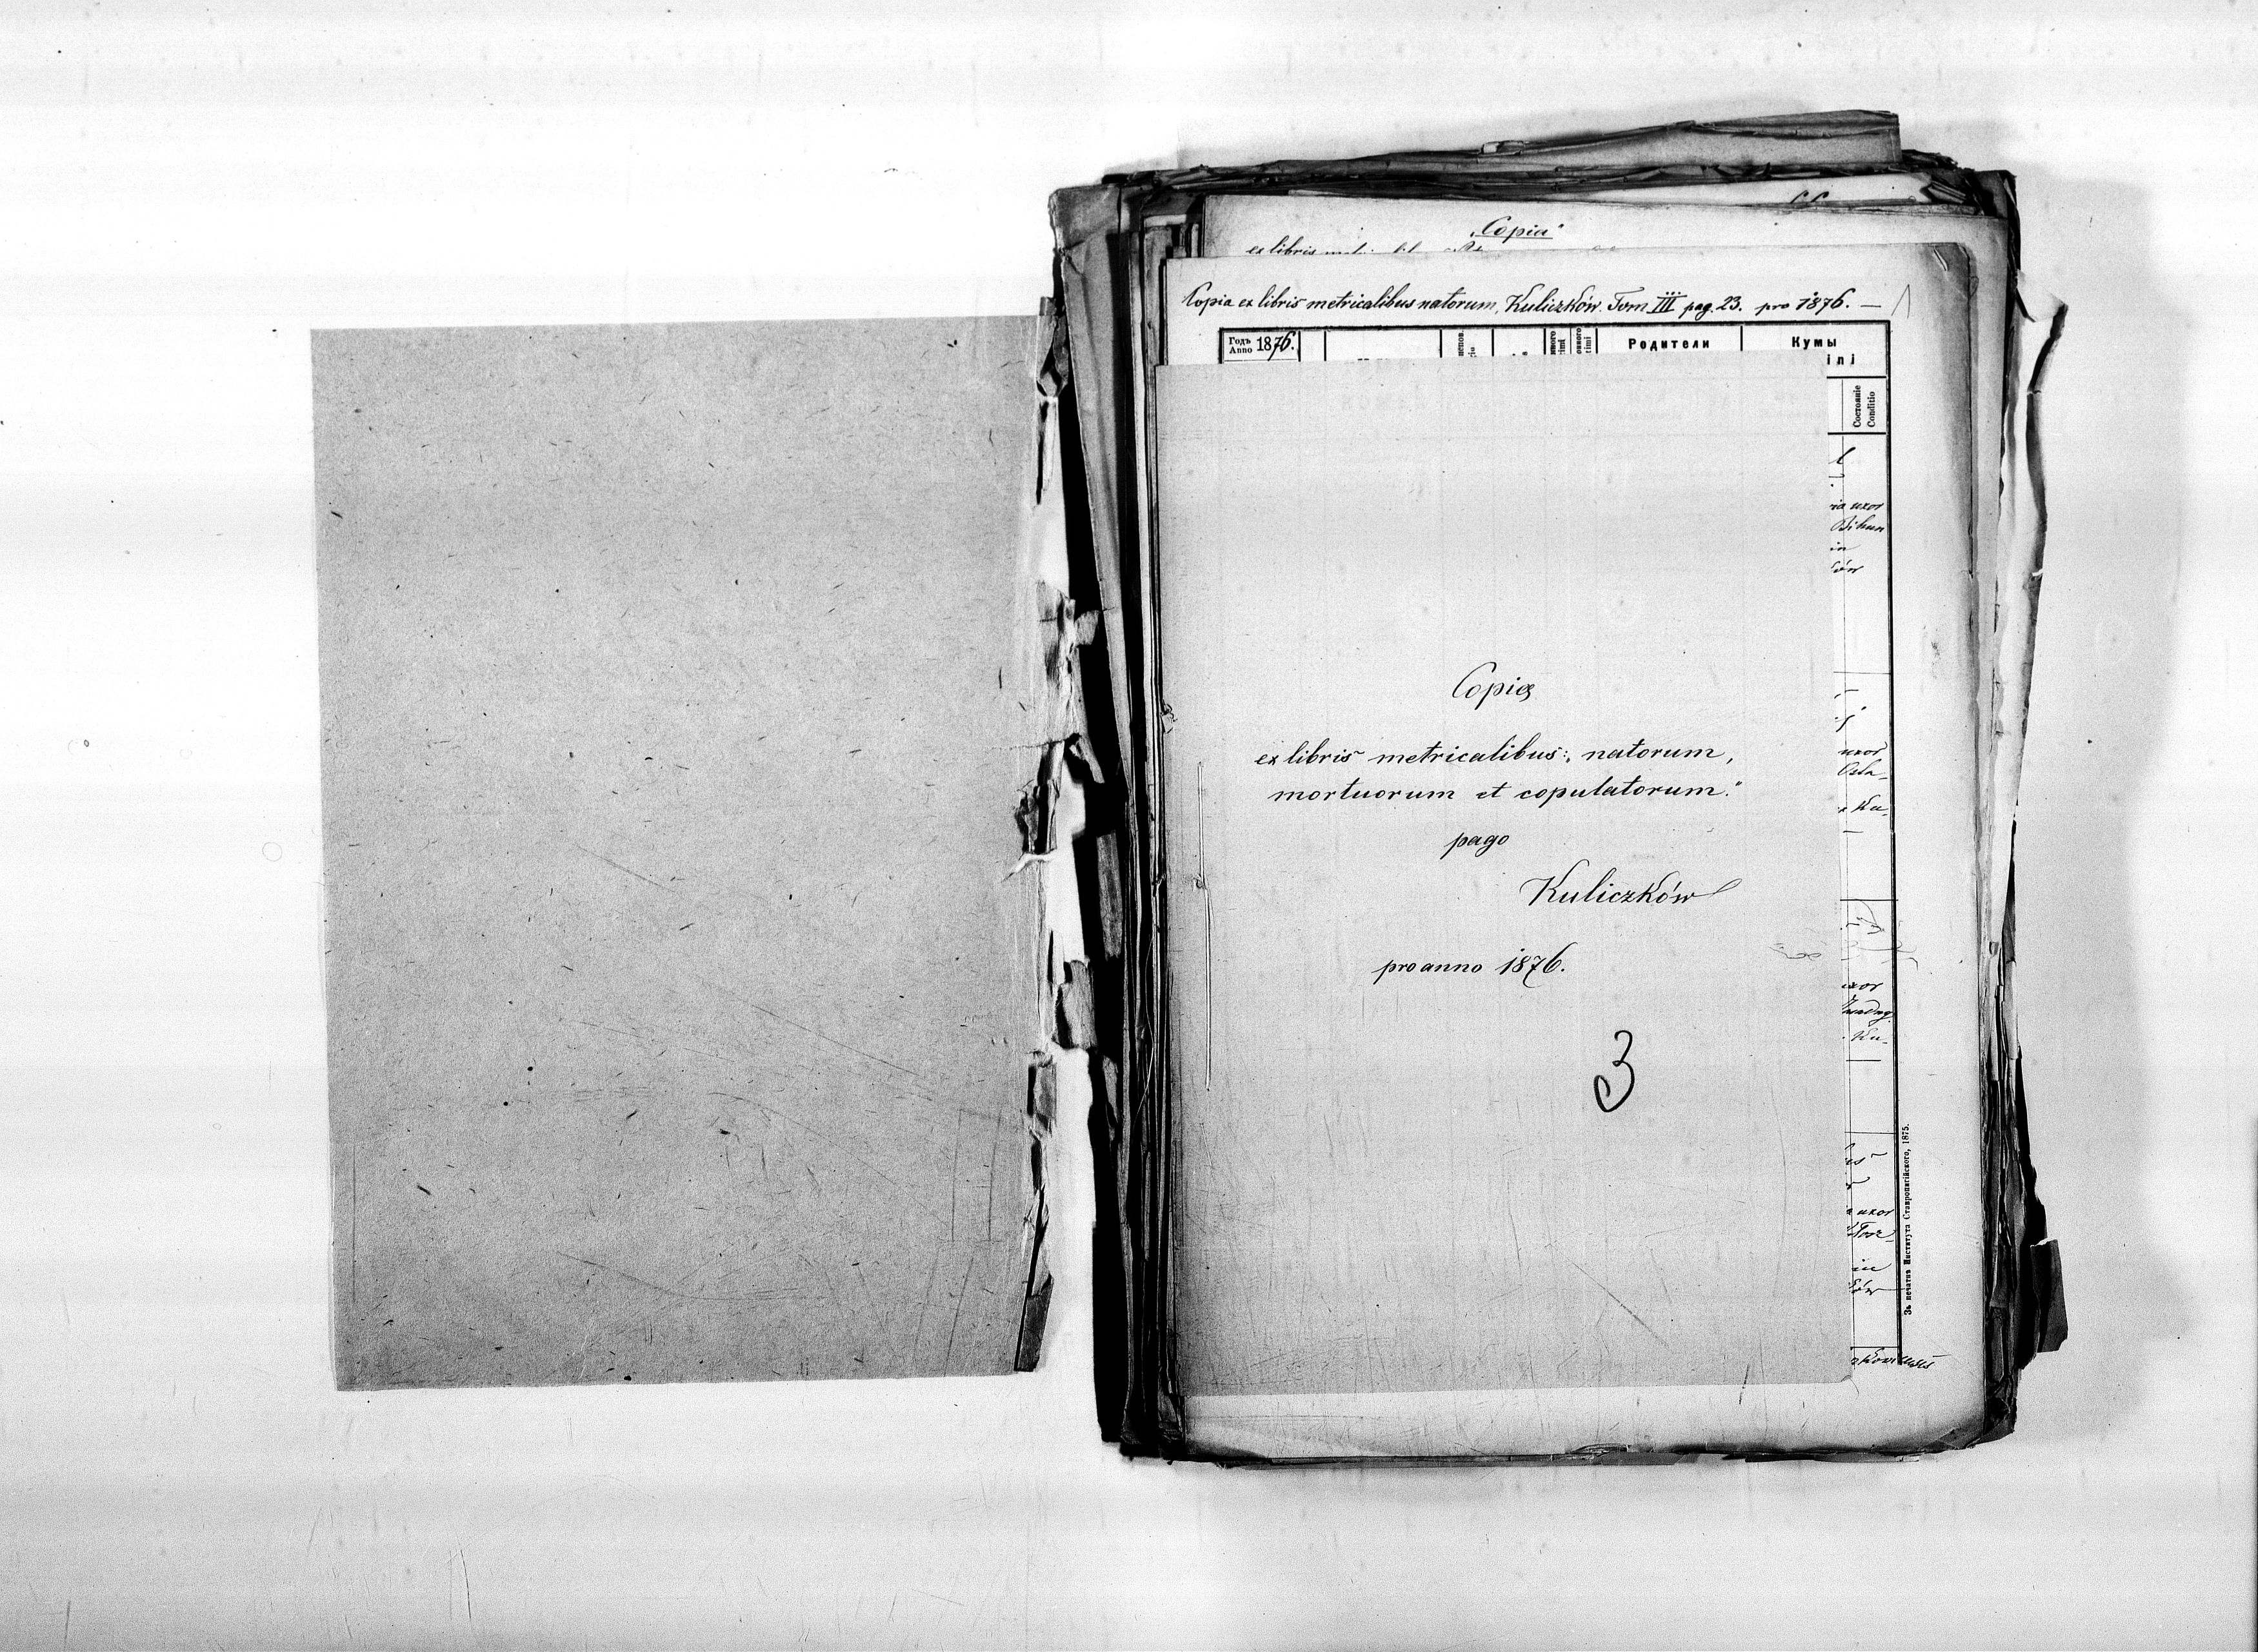 „Copia"
ex libris
Copia ex libris metricalibus natorum, Kuliczków. Tom III pag. 23. pro 1876. —
Годъ
Anno 1876.
Родители
Кумы
ini
Состояніе
Conditio
uxor
Bihun
in
uxor
uxor
in
Copia
ex libris metricalibus: natorum,
mortuorum et copulatorum."
pago
Kuliczków
pro anno 1876.
3
Зъ печатнѣ Института Ставропигійского, 1875.